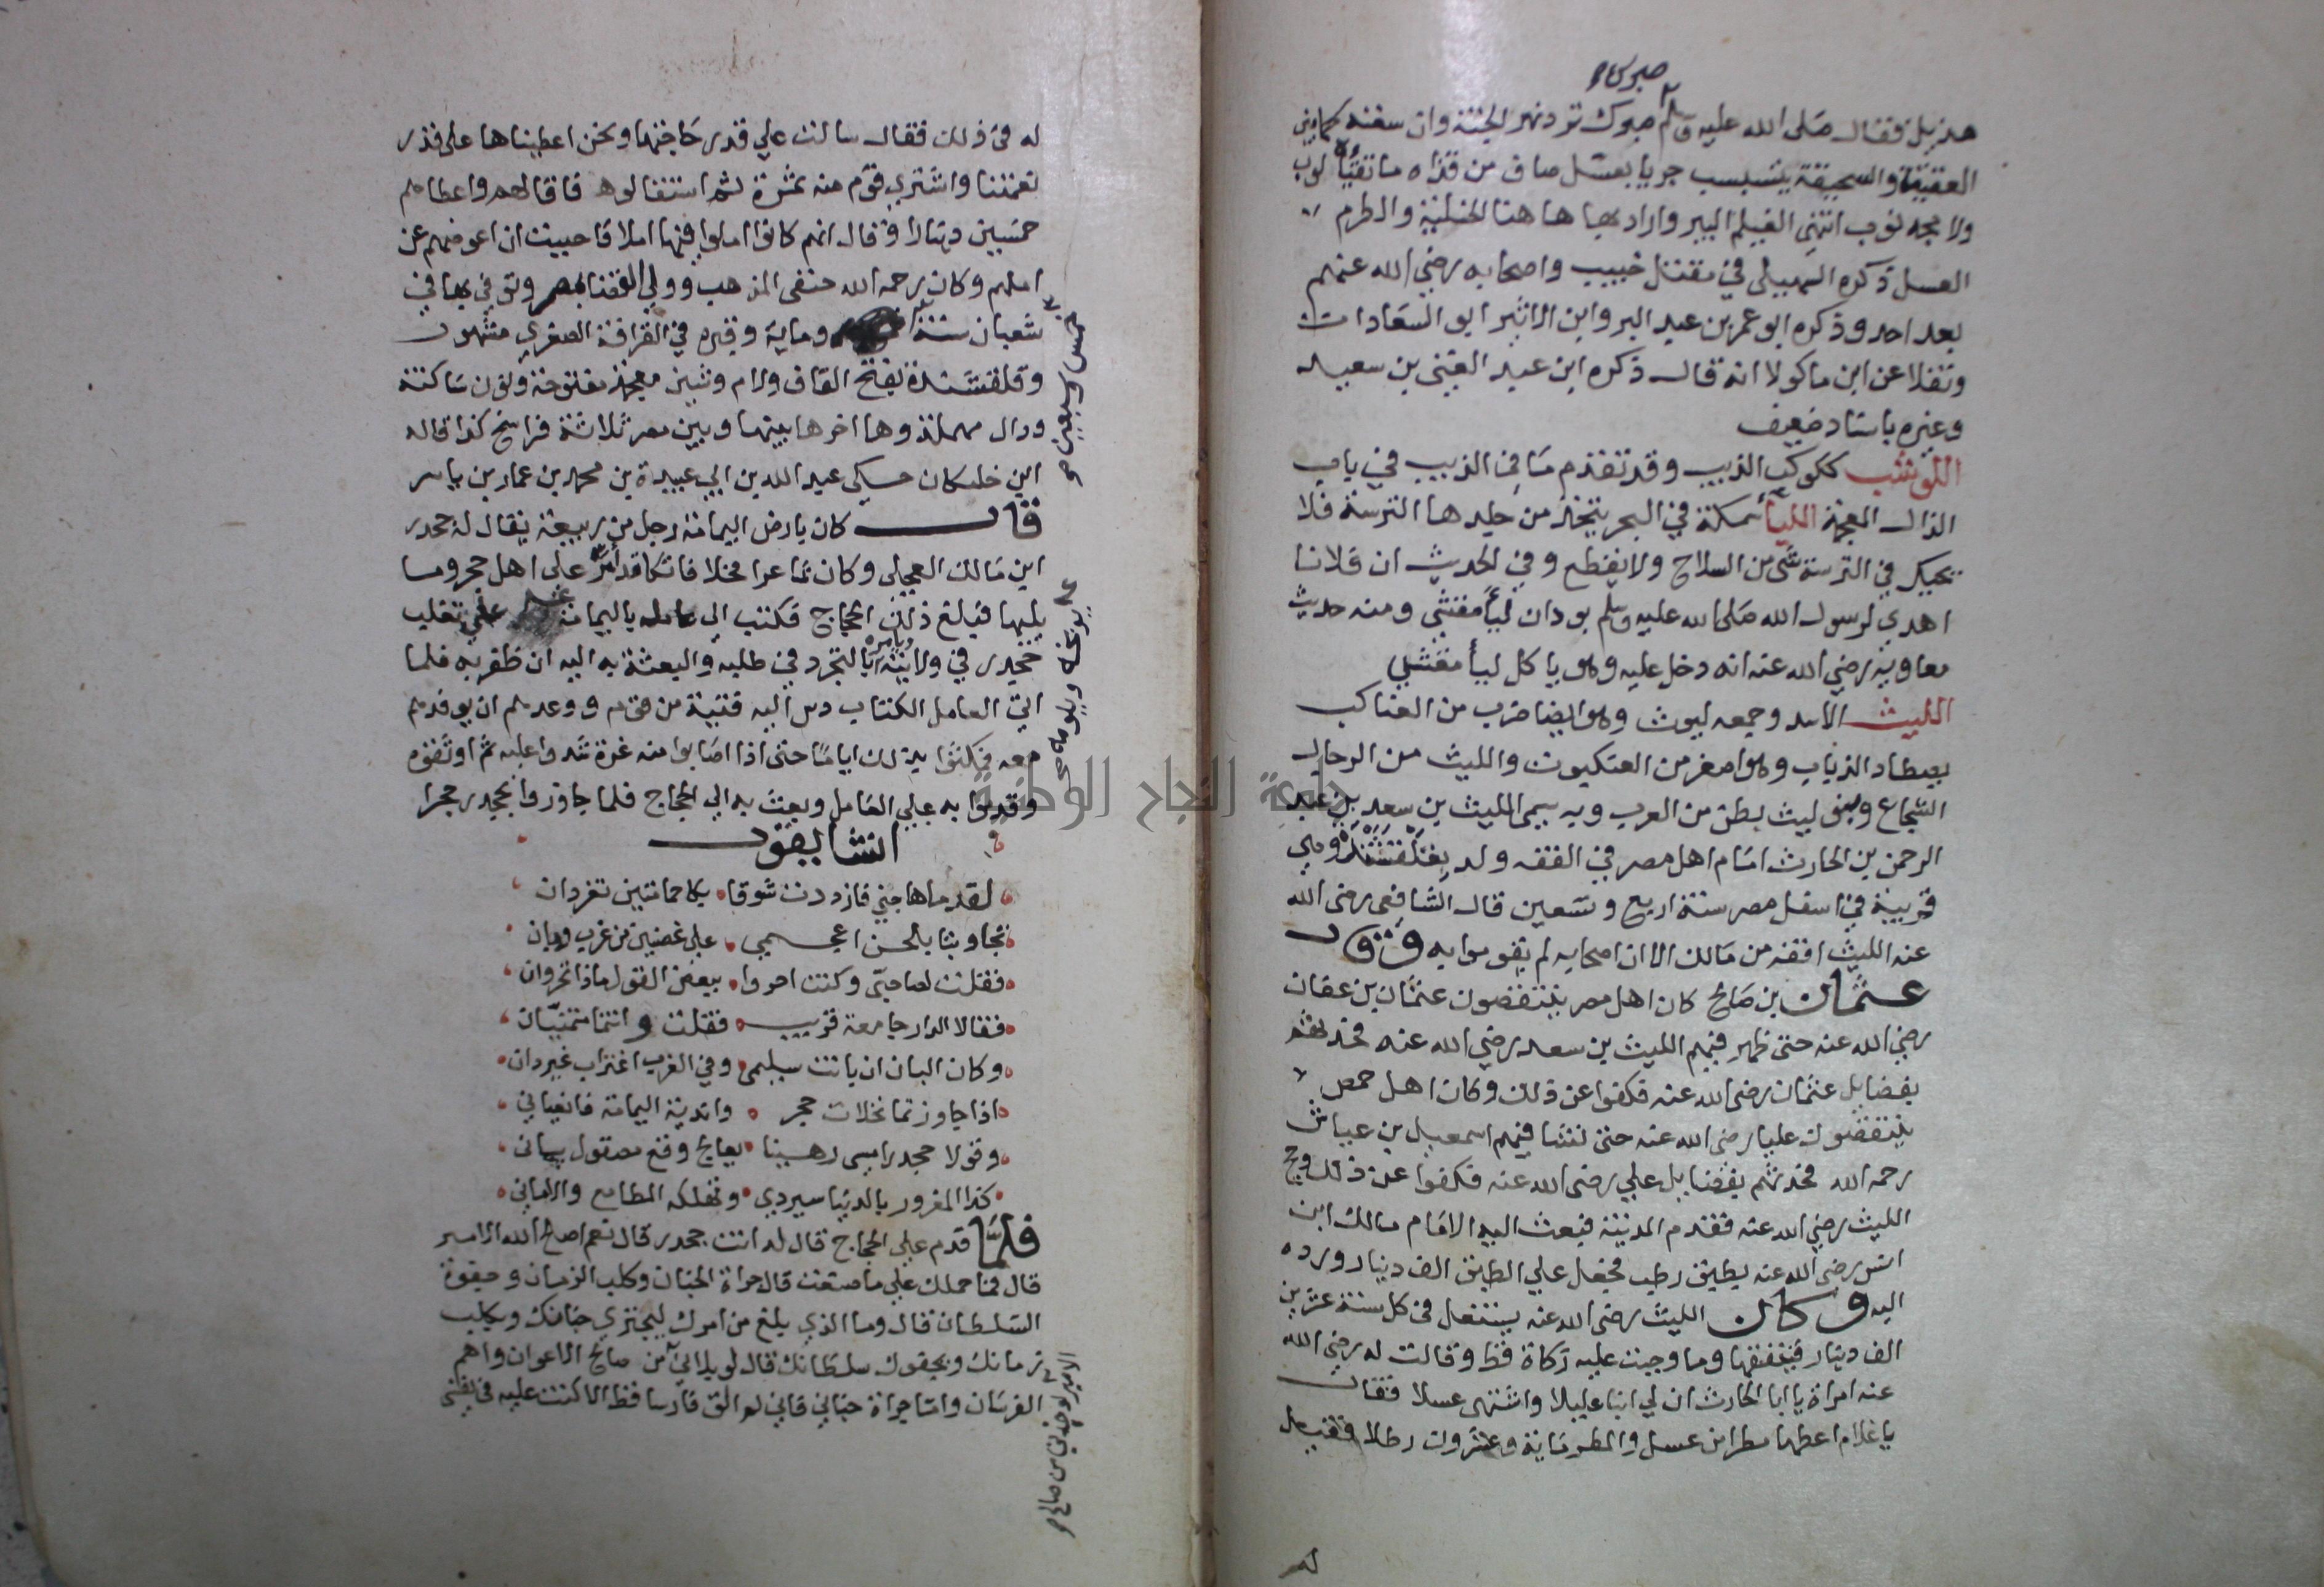 صبرك
هذيل فقال صلى الله عليه وسلم صبرك ترد نهر الجنة وان سعته كما بين
العقيقة والسحيقة يتسبسب جريا بعسل صاف من قذاه ما تقيأه لوب
ولا مجه نوب انتهى الفيلم البير واراد بها هاهنا الخلية والطرم
العسل ذكره السهيلي في مقتل خبيب واصحابه رضي الله عنهم
بعد احد وذكره ابو عمر بن عبد البر وابن الاثير ابو السعادات
ونقلا عن ابن ماكولا انه قال ذكره ابن عبد الغني بن سعيد
وغيره باسناد ضعيف
اللوشب ككوكب الذيب وقد تقدم ما في الذيب في باب
الذال المعجمة اللياء سمكة في البحر يتخذ من جلدها الترسة فلا
يحيك في الترسة شي من السلاح ولا يقطع وفي الحديث ان فلانا
اهدي لرسول الله صلى الله عليه وسلم بودان لياء مقشى ومنه حديث
معاوية رضي الله عنه انه دخل عليه وهو ياكل لياء مقشى
الليث الاسد وجمعه ليوث وهو ايضا ضرب من العناكب
يصطاد الذباب وهو اصغر من العنكبوت والليث من الرجال
الشجاع وبنو ليث بطن من العرب وبه سمى الليث بن سعد بن عبد
الرحمن بن الحارث امام اهل مصر في الفقه ولد بقلقشندة وهي
قرية في اسفل مصر سنة اربع وتسعين قال الشافعي رضى الله
عنه الليث افقه من مالك الا ان اصحابه لم يقوموا به وقال
عثمان بن صالح كان اهل مصر ينتقصون عثمان بن عفان
رضي الله عنه حتى ظهر فيهم الليث بن سعد رضي الله عنه فحدثهم
بفضايل عثمان رضى الله عنه فكفوا عن ذلك وكان اهل حمص
ينتقصون عليا رضى الله عنه حتى نشا فيهم اسمعيل بن عياش
رحمه الله فحدثهم بفضايل علي رضى الله عنه فكفوا عن ذلك وحج
الليث رضي الله عنه فقدم المدينة فبعث اليه الامام مالك ابن
انس رضى الله عنه بطبق رطب فجعل علي الطبق الف دينار ورده
اليه وكان الليث رضى الله عنه يستغل في كل سنة عشرين
الف دينار فينفقها وما وجبت عليه زكاة قط وقالت له رضي الله
عنه امراة يا ابا الحارث ان لي ابنا عليلا واشتهى عسلا فقال
يا غلام اعطها مطرا من عسل والمطر ماية وعشرون رطلا فقيل
له
له في ذلك فقال سالت علي قدر حاجتها ونحن اعطيناها على قدر
نعمتنا واشترى قوم منه ثمرة ثم استقالوه فاقالهم واعطاهم
خمسين دينارا وقال انهم كانوا املوا فيها املا فاحببت ان اعوضهم عن
املهم وكان رحمه الله حنفى المذهب وولي القضا بمصر وتوفي بها في
شعبان سنة وماية وقبره في القرافة الصغري مشهور
خمس وسبعين صح
وقلقشندة بفتح القاف ولام وشين معجمة مفتوحة ونون ساكنة
ودال مهملة وها اخرها بينها وبين مصر ثلاثة فراسخ كذا قاله
ابن خلكان حكى عبد الله بن ابي عبيدة بن محمد بن عمار بن ياسر
قال كان بارض اليمامة رجل من ربيعة يقال له جحدر
ابن مالك العجلي وكان شاعرا فحلا فاتكا قد امر على اهل حجر وما
يليها فبلغ ذلك الحجاج فكتب الى عامله باليمامة علي تغلب
جحدر في ولايته ويامره بالتجرد في طلبه والبعثة به اليه ان ظفر به فلما
اتى العامل الكتاب دس اليه فتية من قومه ووعدهم ان يوفدهم
معه فمكثوا بذلك اياما حتى اذا اصابوا منه غرة شدوا عليه ثم اوثقوه
وقدموا به علي العامل وبعث به الي الحجاج فلما جاوزوا بجحدر حجرا
انشا يقول
لقد ما هاجني فازددت شوقا بكا حمامتين تغردان
تجاوبتا بلحن اعجمي علي غصنين من غرب وبان
فقلت لصاحبى وكنت احروا ببعض القول ماذا تحروان
فقالا الدار جامعة قريب فقلت وانتما متمنيان
وكان البان ان بانت سليمى وفي الغرب اغتراب غير دان
اذا جاوزتما نخلات حجر واندية اليمامة فانعياني
وقولا جحدر امسى رهينا يعالج وقع مصقول يماني
كذا المغرور بالدنيا سيردي وتهلكه المطامع والاماني
فلما قدم علي الحجاج قال له انت جحدر قال نعم اصلح الله الامير
قال فما حملك علي ما صنعت قال جراة الجنان وكلب الزمان وجفوة
السلطان قال وما الذي بلغ من امرك ليجترى جنانك ويكلب
زمانك ويجفوك سلطانك قال لو بلاني من صالح الاعوان واهم
الامير لوجدني من صالح
الفرسان واما جراة جناني فاني لم الق فارسا قط الا كنت عليه في نفسى
جامعة النجاح الوطنية